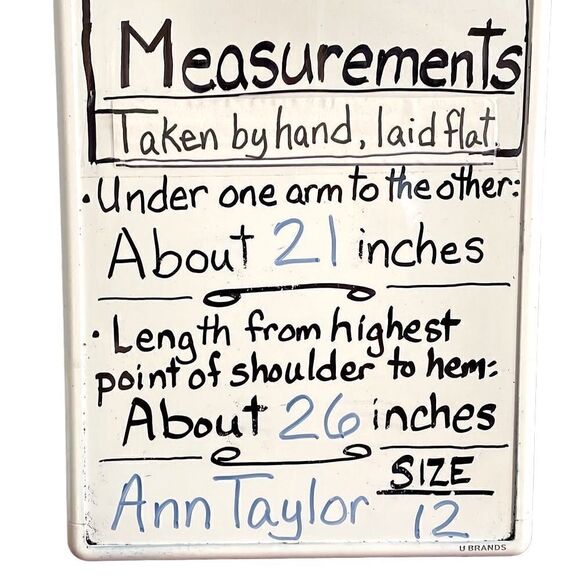 Measurements
Taken by hand, laid flat.
• Under one arm to the other:
About 21 inches
• Length from highest
point of shoulder to hem:
About 26 inches
SIZE
Ann Taylor 12
U BRANDS